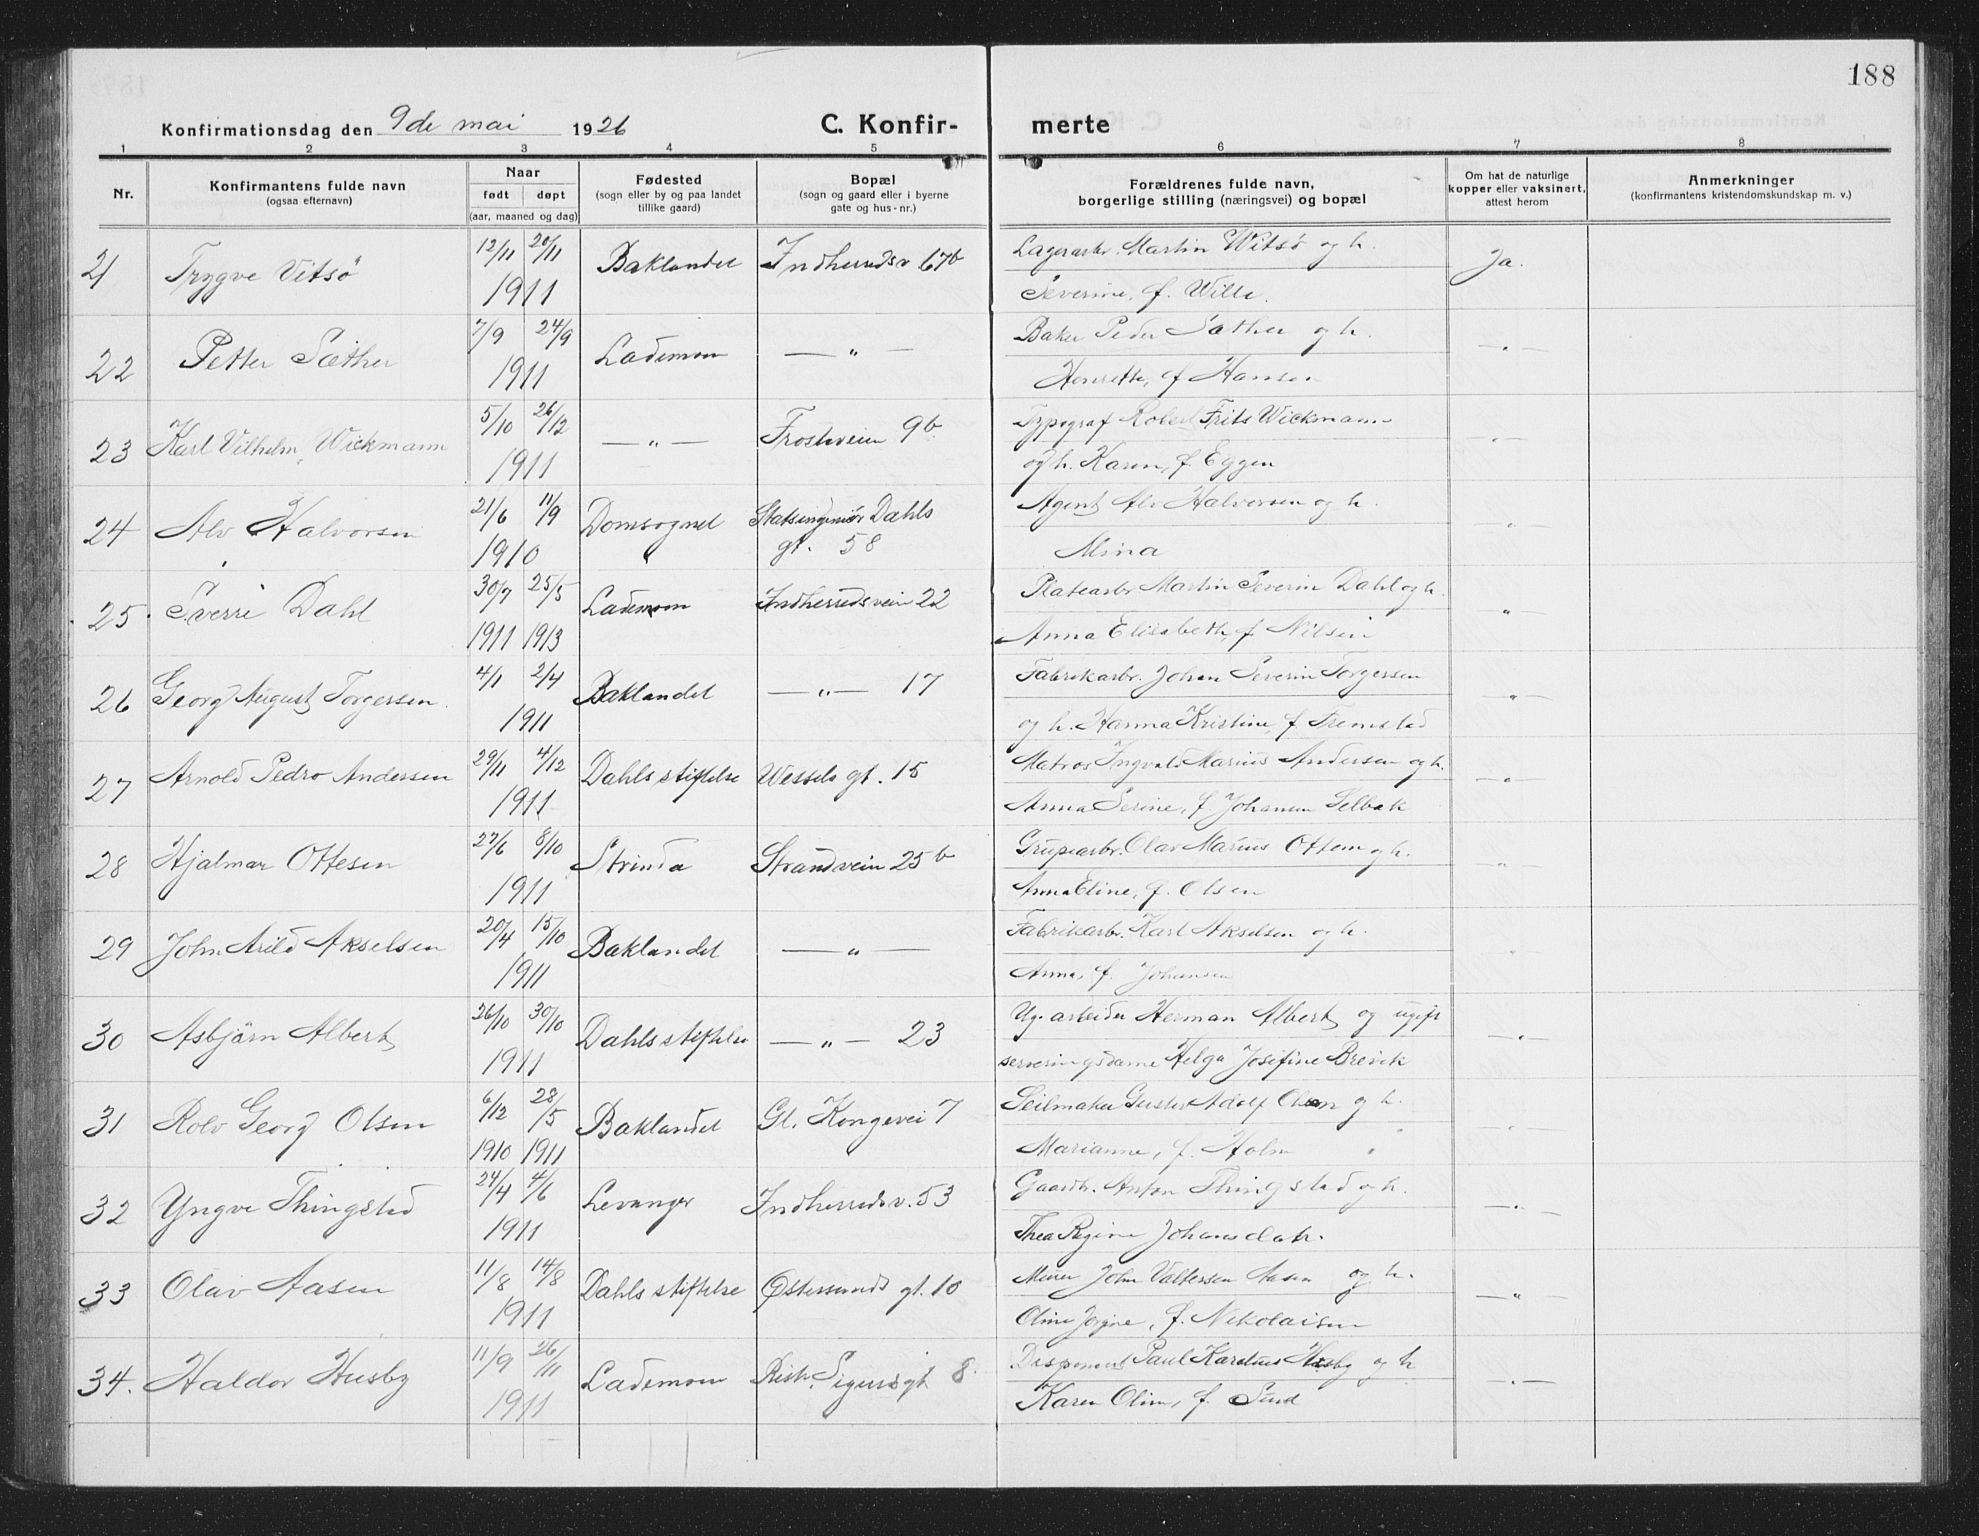 188
Konfirmationsdag den 9de mai 1926 C. Konfir- merte
1 2 3 4 5 6 7 8
Nr. Konfirmantens fulde navn (ogsaa efternavn) Naar født døpt (aar, maaned og dag) Fødested (sogn eller by og paa landet tillike gaard) Bopæl (sogn og gaard eller i byerne gate og hus-nr.) Forældrenes fulde navn, borgerlige stilling (næringsvei) og bopæl Om hat de naturlige kopper eller vaksinert, attest herom Anmerkninger (konfirmantens kristendomskundskap m. v.)
21 Trygve Vitsø 12/11 20/11 Baklandet Indherredsv. 67b Lagerarb. Martin Witsø og h. Ja.
1911 Severine, f. Wille.
22 Petter Sæther 7/9 24/9 Lademoen — " — Baker Peder Sæther og h. — " —
1911 Henrette, f Hansen
23 Karl Vilhelm Wickmann 5/10 26/12 — " — Frostaveien 9b. Typograf Robert Frits Wickmann — " —
1911 og h. Karen, f. Eggen
24 Alv Halvorsen 21/6 11/9 Domsognet Statsingeniør Dahls Agent Alv Halvorsen og h. " —
1910 gt. 58 Mina
25 Sverre Dahl 30/7 25/5 Lademoen Indherredsveien 22 Platearb. Martin Severin Dahl og h. " —
1911 1913 Anna Elisabeth, f Nilsen
26 Georg August Torgersen. 4/1 2/4 Baklandet — " — 17 Fabrikarb. Johan Severin Torgersen " —
1911 og h. Hanna Kristine, f Fremstad
27 Arnold Pedro Andersen 29/11 4/12 Dahls stiftelse Wessels gt. 15 Matros Ingvald Marius Andersen og h. — " —
1911 Anna Serine, f. Johansen Selbak
28 Hjalmar Ottesen 27/6 8/10 Strinda Strandveien 25b Grubearbr. Olav Marius Ottem og h. " —
1911 Anna Eline, f. Olsen
29 John Arild Akselsen 20/4 15/10 Baklandet — " — Fabrikarb. Karl Akselsen og h. " —
1911 Anna, f. Johansen
30 Asbjørn Albert 26/10 30/10 Dahls stiftelse — " — 23 Ug. arbeider Herman Albert og ugift — " —
1911 serveringsdame Helga Josefine Brevik
31 Rolv Georg Olsen 6/12 28/5 Baklandet Gl. Kongevei 7 Seilmaker Gustav Adolf Olsen og h. — " —
1910 1911 Marianne, f. Holm "
32 Yngve Thingstad 24/4 4/6 Levanger Indherredsv. 53 Gaardb. Anton Thingstad og h. — " —
1911 Thea Regine Johansdatr.
33 Olav Aasen 11/8 14/8 Dahls stiftelse Østersunds gt. 10 Murer John Valtersen Aasen og h. — " —
1911 Oline Jorgine, f. Nikolaisen
34. Haldor Husby 11/9 26/11 Lademoen Kristn. Sigurds gt 8. Disponent Paul Karelius Husby og h — " —
1911 Karen Oline, f. Sund